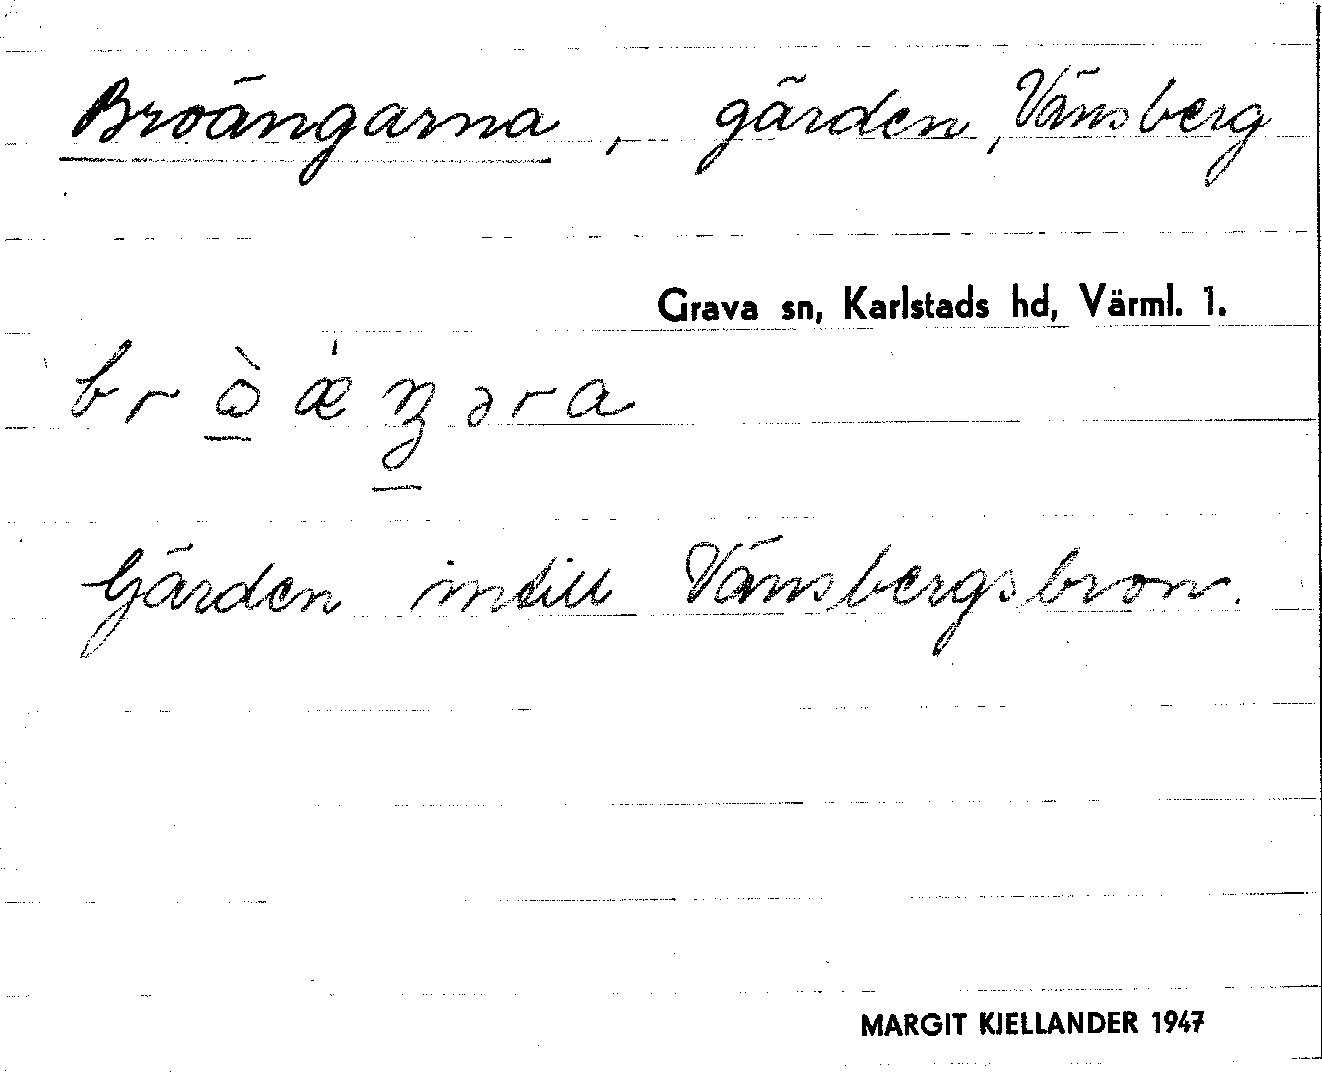 Broängarna, gärden, Vänsberg
Grava sn, Karlstads hd, Värml. 1.
bròæ̍ŋəra
Gärden intill Vänsbergsbron.
MARGIT KJELLANDER 1947